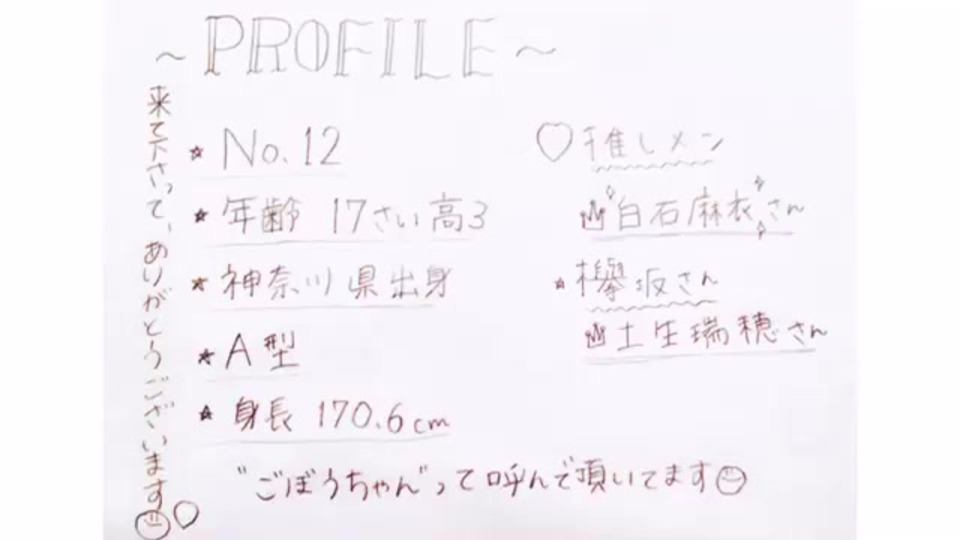 ~PROFILE~
来て下さって、ありがとうございます
★ No.12
★ 年齢 17さい高3
★ 神奈川県出身
★ A型
★ 身長 170.6cm
♡推しメン
白石麻衣さん
★欅坂さん
土生瑞穂さん
"ごぼうちゃん"って呼んで頂いてます